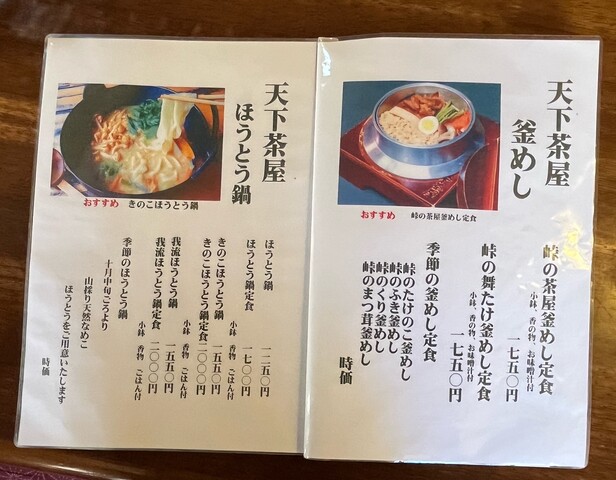 天下茶屋
釜めし
おすすめ 峠の茶屋釜めし定食
峠の茶屋釜めし定食
小鉢、香の物、お味噌汁付
一七五〇円
峠の舞たけ釜めし定食
小鉢、香の物、お味噌汁付
一七五〇円
季節の釜めし定食
峠のたけのこ釜めし
峠のふき釜めし
峠のくり釜めし
峠のまつ茸釜めし
時価
天下茶屋
ほうとう鍋
おすすめ きのこほうとう鍋
ほうとう鍋 一二五〇円
ほうとう鍋定食 一七〇〇円
小鉢 香物 ごはん付
きのこほうとう鍋 一五五〇円
きのこほうとう鍋定食 二〇〇〇円
小鉢 香物 ごはん付
我流ほうとう鍋 一五五〇円
我流ほうとう鍋定食 二〇〇〇円
小鉢 香物 ごはん付
季節のほうとう鍋
十月中旬ごろより
山採り天然なめこ
ほうとうをご用意いたします
時価